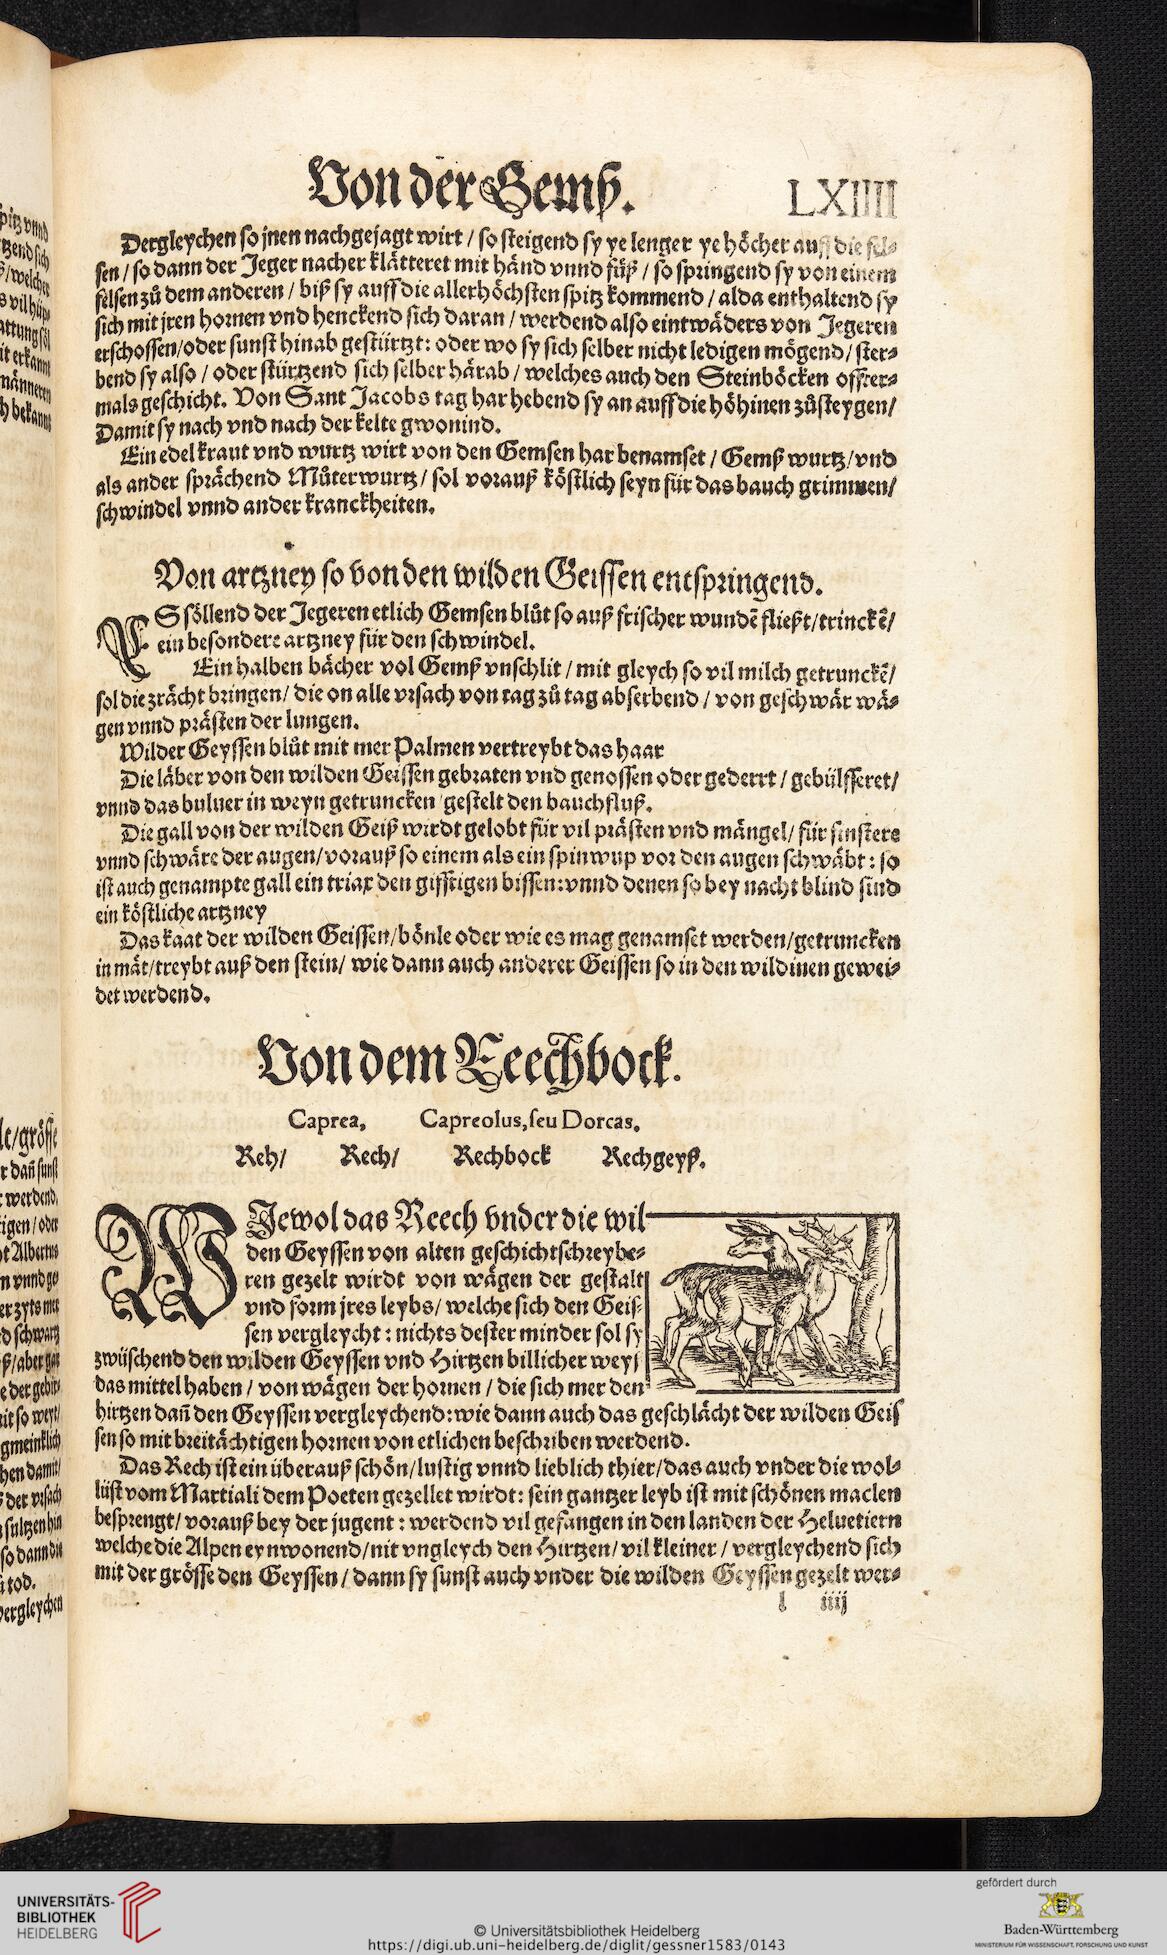 Von der Gemß.
LXIIII
Dergleychen so jnen nachgejagt wirt / so steigend sy ye lenger ye höcher auff die fel-
sen / so dann der Jeger nacher klätteret mit händ vnnd füß / so springend sy von einem
felsen zů dem anderen / biß sy auff die allerhöchsten spitz kommend / alda enthaltend sy
sich mit jren hornen vnd henckend sich daran / werdend also eintwäders von Jegeren
erschossen/oder sunst hinab gestürtzt: oder wo sy sich selber nicht ledigen mögend / ster-
bend sy also / oder stürtzend sich selber härab / welches auch den Steinböcken offter-
mals geschicht. Von Sant Jacobs tag har hebend sy an auff die höhinen zůsteygen/
Damit sy nach vnd nach der kelte gwonind.
Ein edel kraut vnd wurtz wirt von den Gemsen har benamset / Gemß wurtz/vnd
als ander sprächend Můterwurtz / sol vorauß köstlich seyn für das bauch grimmen/
schwindel vnnd ander kranckheiten.
Von artzney so von den wilden Geissen entspringend.
ES söllend der Jegeren etlich Gemsen blůt so auß frischer wundē fließt/trinckē/
ein besondere artzney für den schwindel.
Ein halben bächer vol Gemß vnschlit / mit gleych so vil milch getrunckē/
sol die zrächt bringen/ die on alle vrsach von tag zů tag abserbend / von geschwär wä-
gen vnnd prästen der lungen.
Wilder Geyssen blůt mit mer Palmen vertreybt das haar
Die läber von den wilden Geissen gebraten vnd genossen oder gederrt / gebülfferet/
vnnd das buluer in weyn getruncken gestelt den bauchfluß.
Die gall von der wilden Geiß wirdt gelobt für vil prästen vnd mängel/ für finstere
vnnd schwäre der augen/vorauß so einem als ein spinwup vor den augen schwäbt: so
ist auch genampte gall ein triax den gifftigen bissen: vnnd denen so bey nacht blind sind
ein köstliche artzney
Das kaat der wilden Geissen/bönle oder wie es mag genamset werden/getruncken
in mät/treybt auß den stein/ wie dann auch anderer Geissen so in den wildinen gewei-
det werdend.
Von dem Reechbock.
Caprea, Capreolus, seu Dorcas.
Reh/ Rech/ Rechbock Rechgeyß.
WJewol das Reech vnder die wil
den Geyssen von alten geschichtschreybe-
ren gezelt wirdt von wägen der gestalt
vnd form jres leybs/ welche sich den Geis-
sen vergleycht: nichts dester minder sol sy
zwüschend den wilden Geyssen vnd Hirtzen billicher weyß
das mittel haben / von wägen der hornen / die sich mer den
hirtzen dañ den Geyssen vergleychend: wie dann auch das geschlächt der wilden Geis
sen so mit breitächtigen hornen von etlichen beschriben werdend.
Das Rech ist ein überauß schön/lustig vnnd lieblich thier/das auch vnder die wol-
lüst vom Martiali dem Poeten gezellet wirdt: sein gantzer leyb ist mit schönen maclen
besprengt/ vorauß bey der jugent: werdend vil gefangen in den landen der Heluetiern
welche die Alpen eynwonend/nit vngleych den Hirtzen/ vil kleiner / vergleychend sich
mit der grösse den Geyssen / dann sy sunst auch vnder die wilden Geyssen gezelt wer-
l iiij
UNIVERSITÄTS-
BIBLIOTHEK
HEIDELBERG
© Universitätsbibliothek Heidelberg
https://digi.ub.uni-heidelberg.de/diglit/gessner1583/0143
gefördert durch
Baden-Württemberg
MINISTERIUM FÜR WISSENSCHAFT, FORSCHUNG UND KUNST